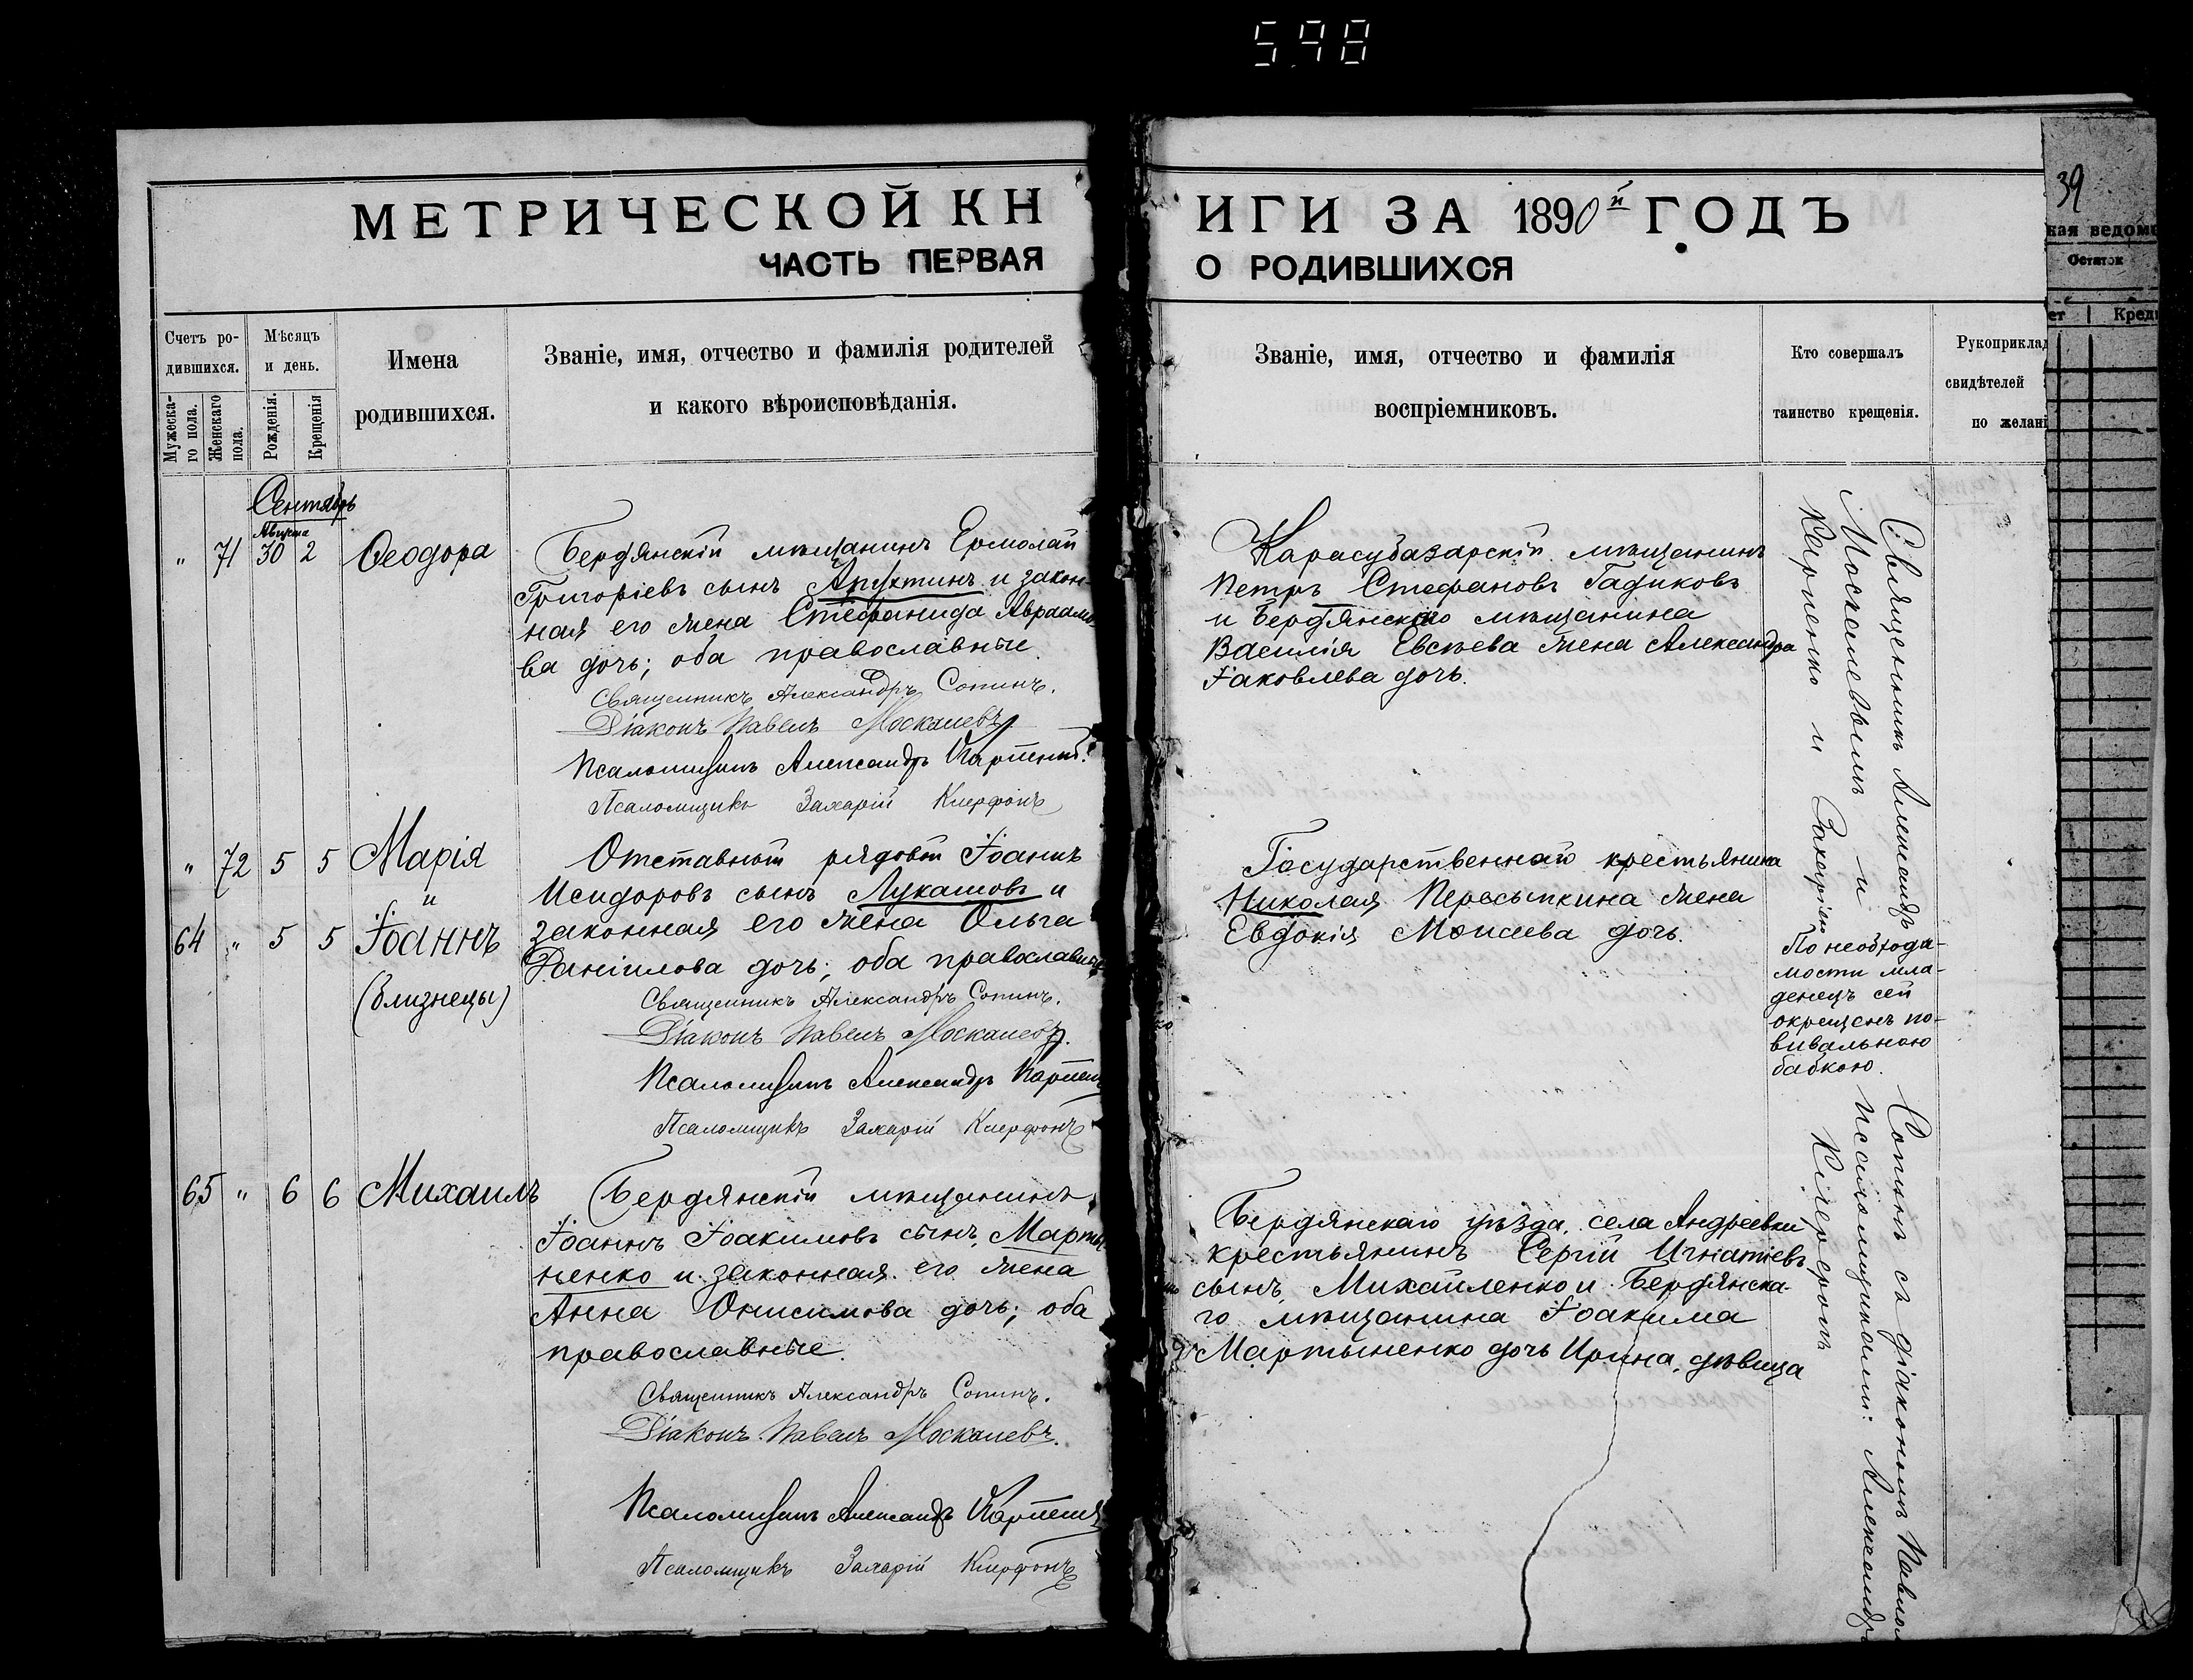 598
МЕТРИЧЕСКОЙ КН
ЧАСТЬ ПЕРВАЯ
Счетъ ро-
дившихся.
Мужеска-
го пола.
Женскаго
пола.
Мѣсяцъ
и день.
Рожденія.
Крещенія
Имена
родившихся.
Званіе, имя, отчество и фамилія родителей
и какого вѣроисповѣданія.
Сентябрь
Августа
" 71 30 2 Ѳеодора
Бердянскій мѣщанинъ Ермолай
Григоріевъ сынъ Апухтинъ и закон-
ная его жена Стефанида Авраамо-
ва дочь; оба православные
Священникъ Александръ Сопинъ.
Діаконъ Павелъ Москалевъ
Псаломщикъ Александръ Карпенко.
Псаломщикъ Захарій Клерфонъ
" 72 5 5 Марія
и
64 " 5 5 Іоаннъ
(близнецы)
Отставной рядовой Іоаннъ
Исидоровъ сынъ Лукашовъ и
законная его жена Ольга
Даніилова дочь; оба православные
Священникъ Александръ Сопинъ.
Діаконъ Павелъ Москалевъ.
Псаломщикъ Александръ Карпен
Псаломщикъ Захарій Клерфонъ
65 " 6 6 Михаилъ
Бердянскій мѣщанинъ
Іоаннъ Іоакимовъ сынъ Марты-
ненко и законная его жена
Анна Онисимова дочь; оба
православные.
Священникъ Александръ Сопинъ.
Діаконъ Павелъ Москалевъ.
Псаломщикъ Александръ Карпен
Псаломщикъ Захарій Клерфонъ
ИГИ ЗА 1890й ГОДЪ
О РОДИВШИХСЯ
Званіе, имя, отчество и фамилія
воспріемниковъ.
Кто совершалъ
таинство крещенія.
Рукоприклад
свидѣтелей
по желані
Карасубазарскій мѣщанинъ
Петръ Стефановъ Гадиковъ
и Бердянскаго мѣщанина
Василія Евсѣева жена Александра
Іаковлева дочь.
Государственнаго крестьянина
Николая Пересыпкина жена
Евдокія Моисеева дочь.
Бердянскаго уѣзда, села Андреевки
крестьянинъ Сергій Игнатіевъ
сынъ Михайленко и Бердянска-
го мѣщанина Іоакима
Мартыненко дочь Ирина, дѣвица
Священникъ Александръ
Москалевымъ и
Карпенко и Захаріемъ
По необходи-
мости мла-
денецъ сей
окрещенъ по-
вивальною
бабкою.
Сопинъ съ діакономъ Павломъ
псаломщиками: Александр
Клерфономъ
39
кая ведомо
Остаток
ет
Креди